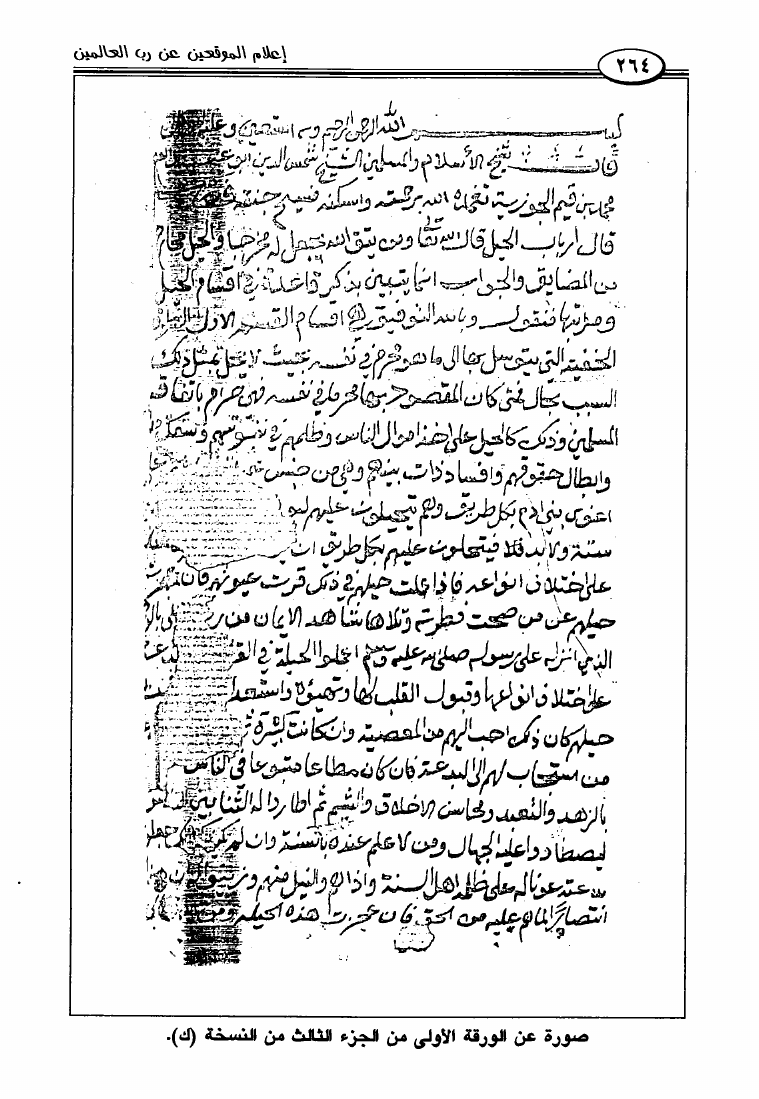 إعلام الموقعين عن رب العالمين
٢٦٤
بسم الله الرحمن الرحيم وبه نستعين
قال شيخ الاسلام والمسلمين الشيخ شمس الدين ابو عبد
محمد بن قيم الجوزية تغمده الله برحمته واسكنه فسيح جنته
قال ارباب الحيل قال الله تعالى ومن يتق الله يجعل له مخرجا والحيل مخارج
من المضايق والجواب انما يتبين بذكر قاعدة في اقسام الحيل
ومراتبها فنقول وبالله التوفيق اقسام القسم الاول الطرق
الخفية التي يتوسل بها الى ما هو محرم في نفسه بحيث لا يحل بمثل ذلك
السبب بحال فمتى كان المقصود بها محرما في نفسه فهي حرام باتفاق
المسلمين وذلك كالحيل على اخذ اموال الناس وظلمهم في نفوسهم وسفك
وابطال حقوقهم وافساد ذات بينهم وهي من جنس
اغوى بني ادم بكل طريق وهم يتحيلون عليهم
سنة ولا بد فلا فيتحيلون عليهم بكل طريق
على اختلاف انواعه فاذا عملت حيلهم في ذلك قرت عيونهم فان
حيلهم عن من صحت فطرته وتلاها شاهد الايمان من
الذي انزله على رسوله صلى الله عليه وسلم اعملوا الحيلة في
على اختلاف انواعها وقبول القلب لها وتهيؤه واستعداده
حيلهم كان ذلك احب اليهم من المعصية وان كانت كبيرة
من استجاب لهم الى البدعة فان كان مطاعا متبوعا في الناس
بالزهد والتعبد ومحاسن الاخلاق والشيم ثم اطاروا له الثنا بين
ليصطادوا عليه الجهال ومن لا علم عنده بالسنة وان لم يكن
بدعته عونا له على ظلمه اهل السنة واذاهم والنيل منهم
انتصارا لما هم عليه من الحق فان عجزت هذه الحيلة ومن
صورة عن الورقة الأولى من الجزء الثالث من النسخة (ك).